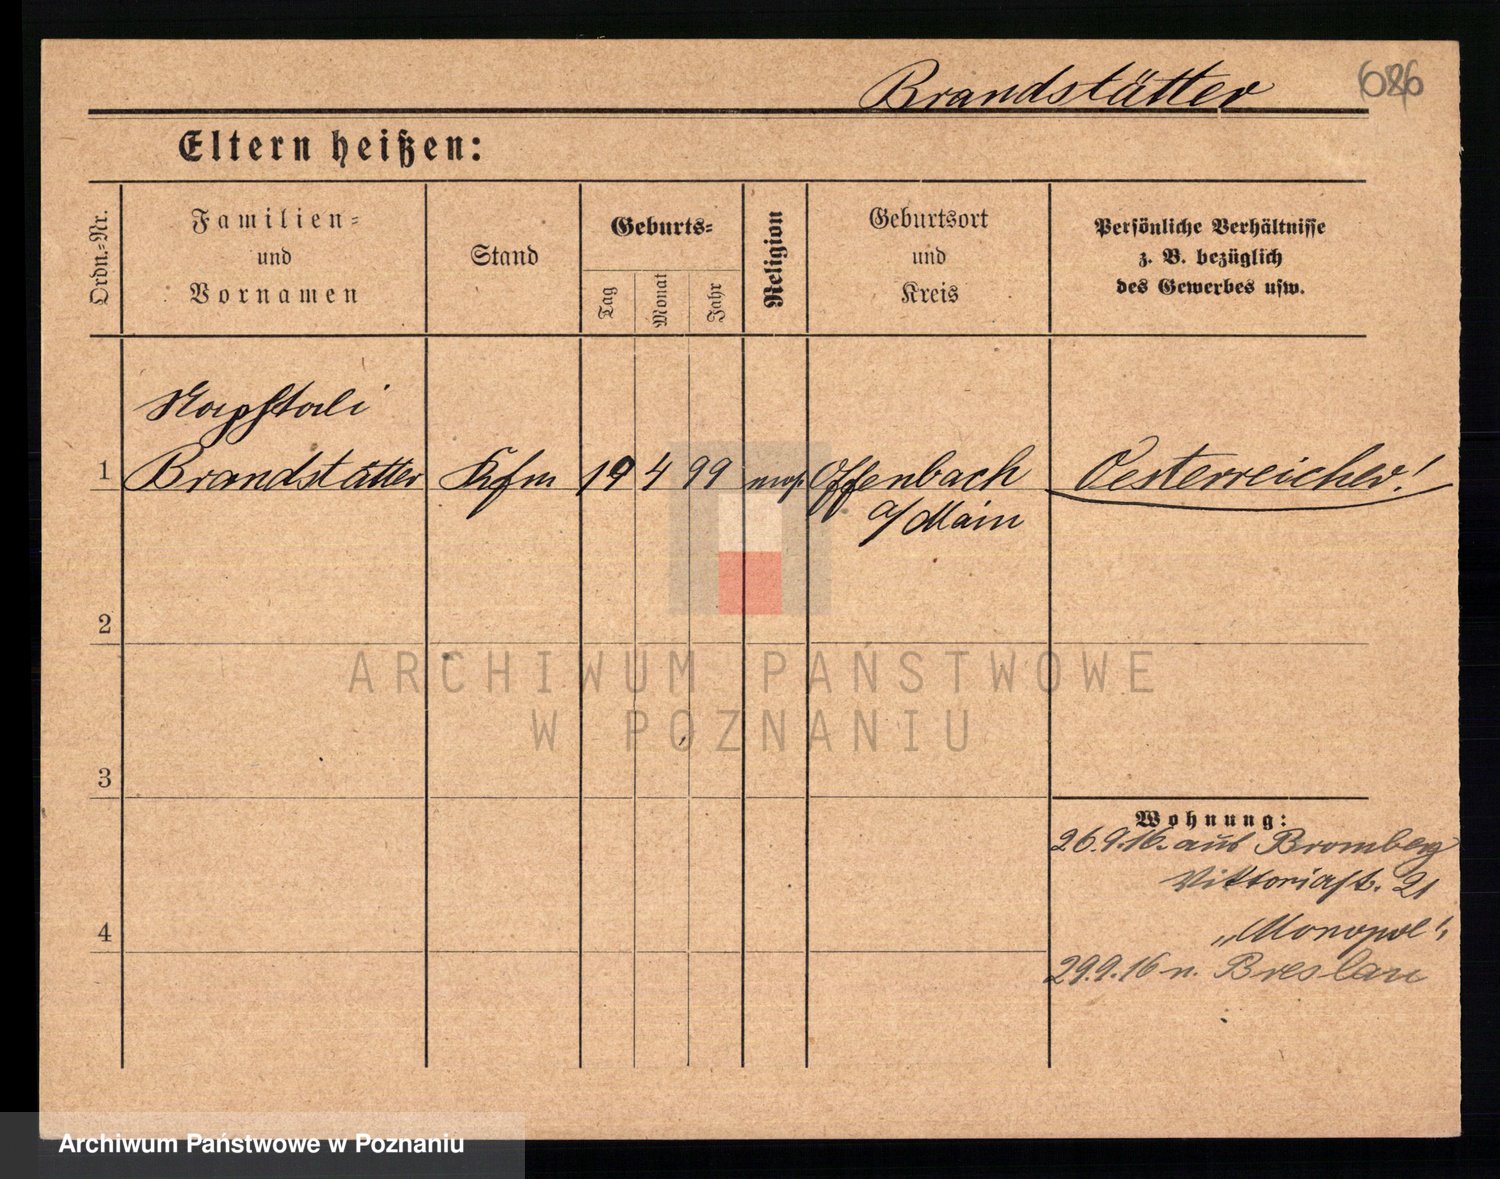 Brandstätter
686
Eltern heißen:
Ordn.-Nr.
Familien-
und
Vornamen
Stand
Geburts-
Tag
Monat
Jahr
Religion
Geburtsort
und
Kreis
Persönliche Verhältnisse
z. B. bezüglich
des Gewerbes usw.
Naphtali
1 Brandstätter Kfm 19 4 99 mos. Offenbach Oesterreicher!
a/Main
2
ARCHIWUM PAŃSTWOWE
W POZNANIU
3
Wohnung:
26.9.16. aus Bromberg
Viktoriast. 21
4 „Monopol“
29.9.16 n. Breslau
Archiwum Państwowe w Poznaniu